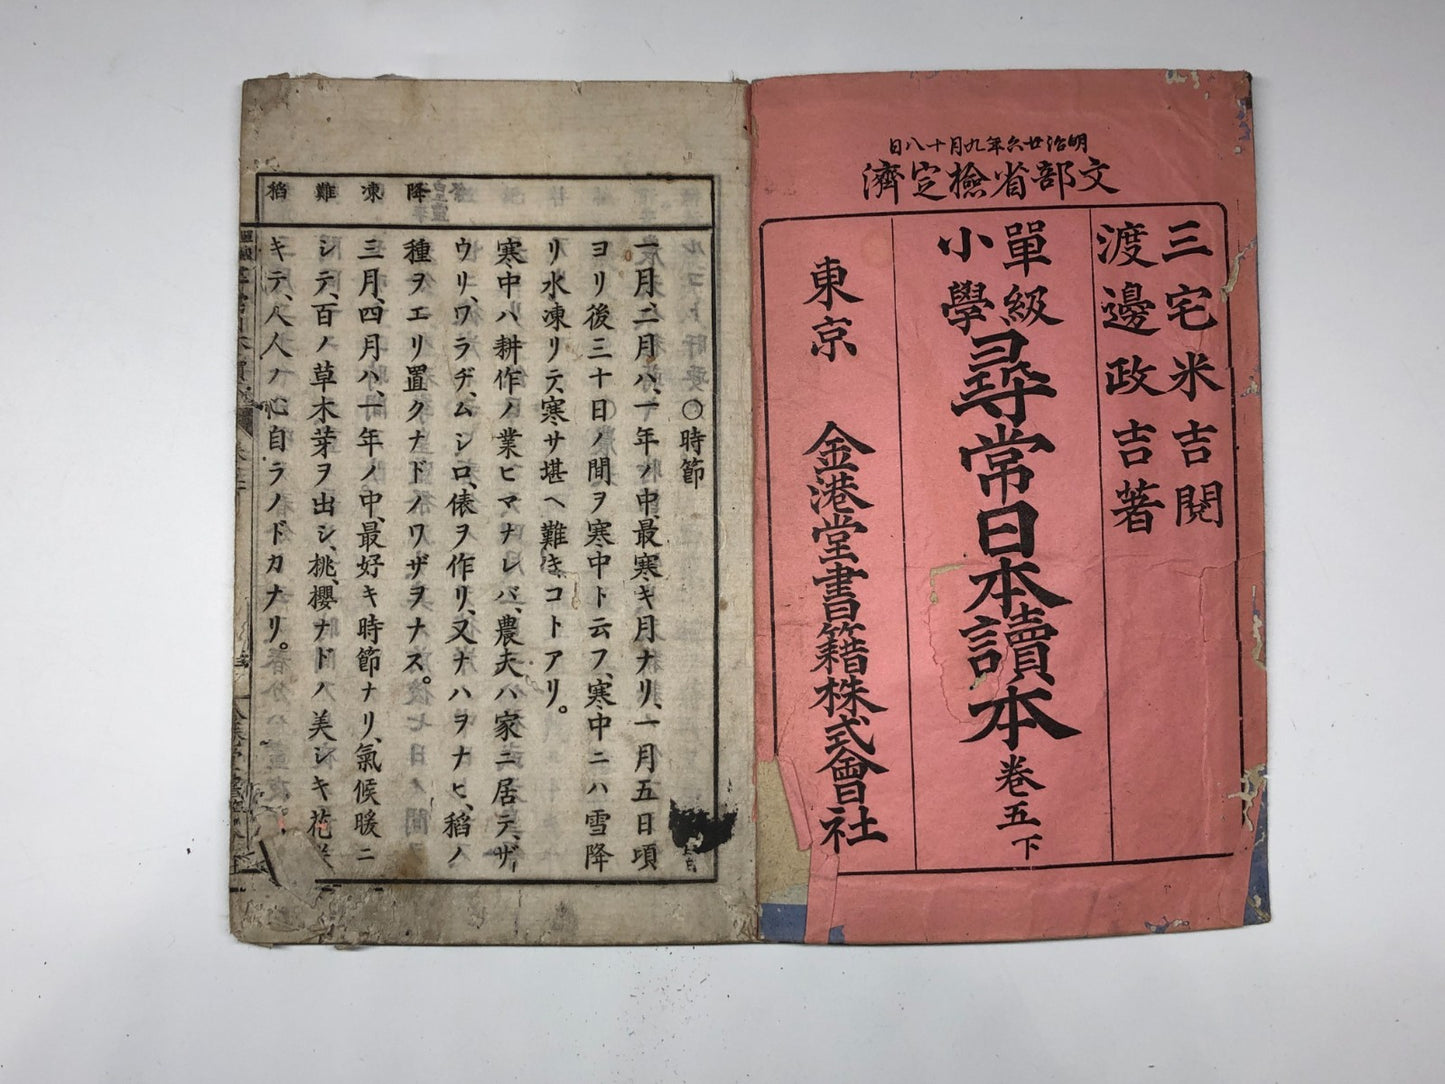 明治廿六年九月十八日
文部省檢定濟
三宅米吉閱
渡邊政吉著
單級
小學
尋常日本讀本卷五下
東京 金港堂書籍株式會社
降
凍
難
稻
〇時節
一月、二月ハ、一年ノ中、最寒キ月ナリ、一月五日頃
ヨリ後三十日ノ間ヲ寒中ト云フ、寒中ニハ雪降
リ水凍リテ、寒サ堪ヘ難キコトアリ。
寒中ハ耕作ノ業ヒマナレバ、農夫ハ家ニ居テ、ザ
ウリ、ワラヂ、ムシロ、俵ヲ作リ、又ナハヲナヒ、稻ノ
種ヲエリ置クナドノワザヲナス。
三月、四月ハ、一年ノ中、最好キ時節ナリ、氣候暖ニ
シテ、百ノ草木芽ヲ出シ、桃、櫻ナドハ美シキ花咲
キテ、人人ノ心自ラノドカナリ。